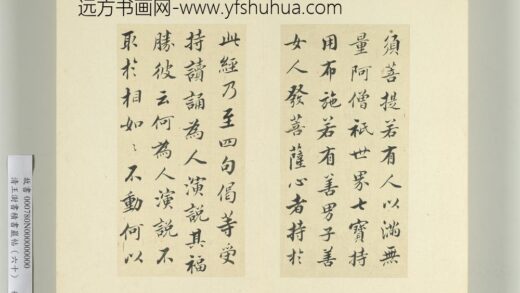 远方书画网-www.yfshuhua.com
須菩提若有人以滿無
量阿僧祇世界七寶持
用布施若有善男子善
女人發菩薩心者持於
此經乃至四句偈等受
持讀誦為人演說其福
勝彼云何為人演說不
取於相如〻不動何以
故書000780N000000000
清王澍書積書巖帖(六十)